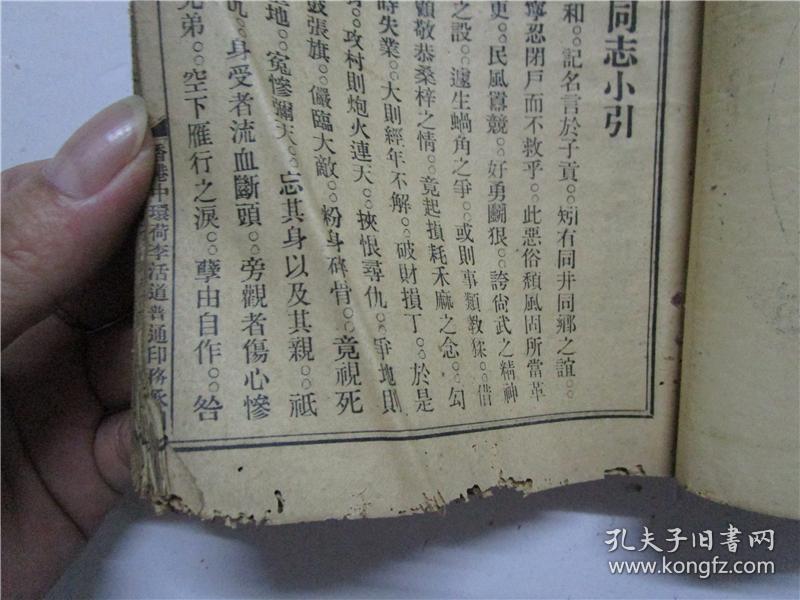 同志小引
和○○記名言於子貢○○矧有同井同鄉之誼○○
寧忍閉戸而不救乎○○此惡俗頽風固所當革
更○○民風囂競○○好勇鬭狠○○誇尙武之精神○○借
之設○○遽生蝸角之爭○○或則事類敎猱○○勾
顧敬恭桑梓之情○○竟起損耗禾麻之念○○
時失業○○大則經年不解○○破財損丁○○於是
攻村則炮火連天○○挾恨尋仇○○爭地則
鼓張旗○○儼臨大敵○○粉身碎骨○○竟視死
地○○寃慘彌天○○忘其身以及其親○○祇
身受者流血斷頭○○旁觀者傷心慘
兄弟○○空下雁行之淚○○孽由自作○○咎
香港中環荷李活道普通印務承
孔夫子旧書网
www.kongfz.com